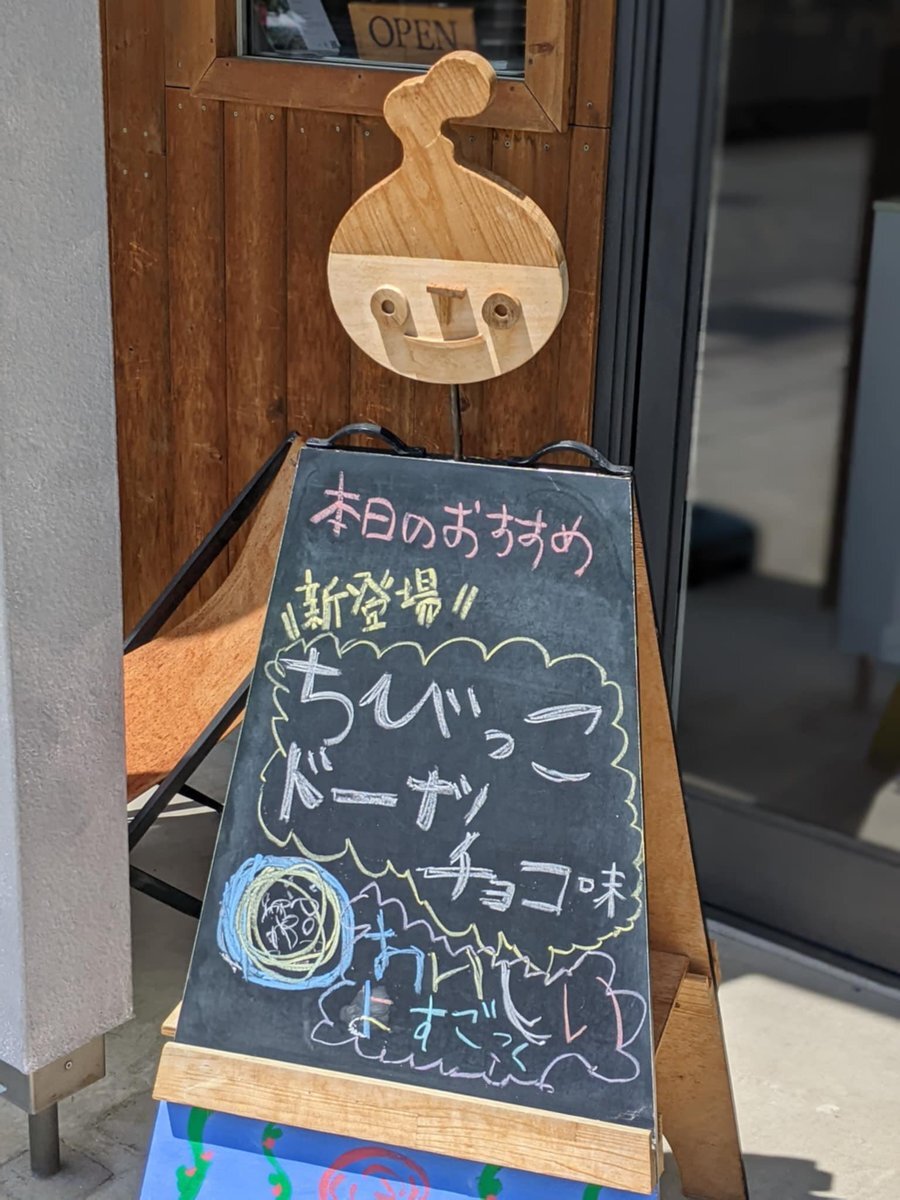 OPEN
本日のおすすめ
新登場
ちびっこ
ドーナツ
チョコ味
おいしい
よ すごっく